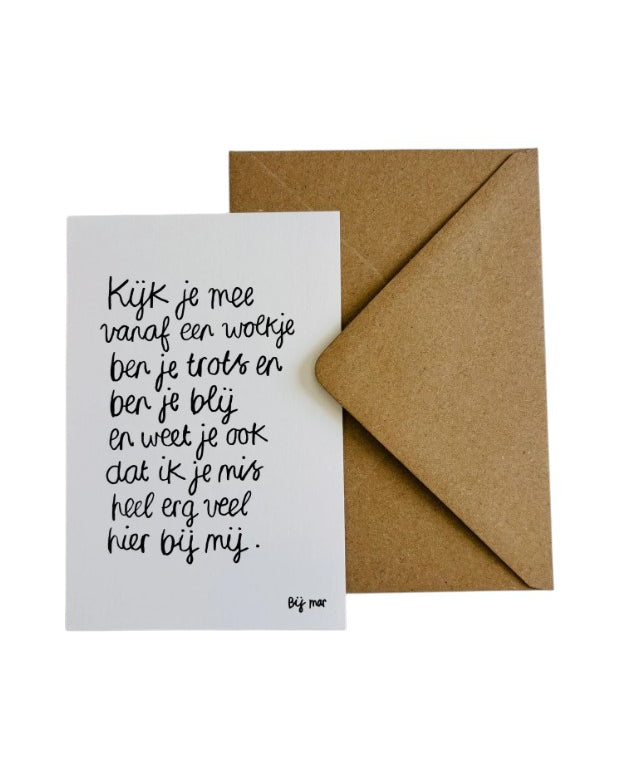 Kijk je mee
vanaf een wolkje
ben je trots en
ben je blij
en weet je ook
dat ik je mis
heel erg veel
hier bij mij.
Bij mar